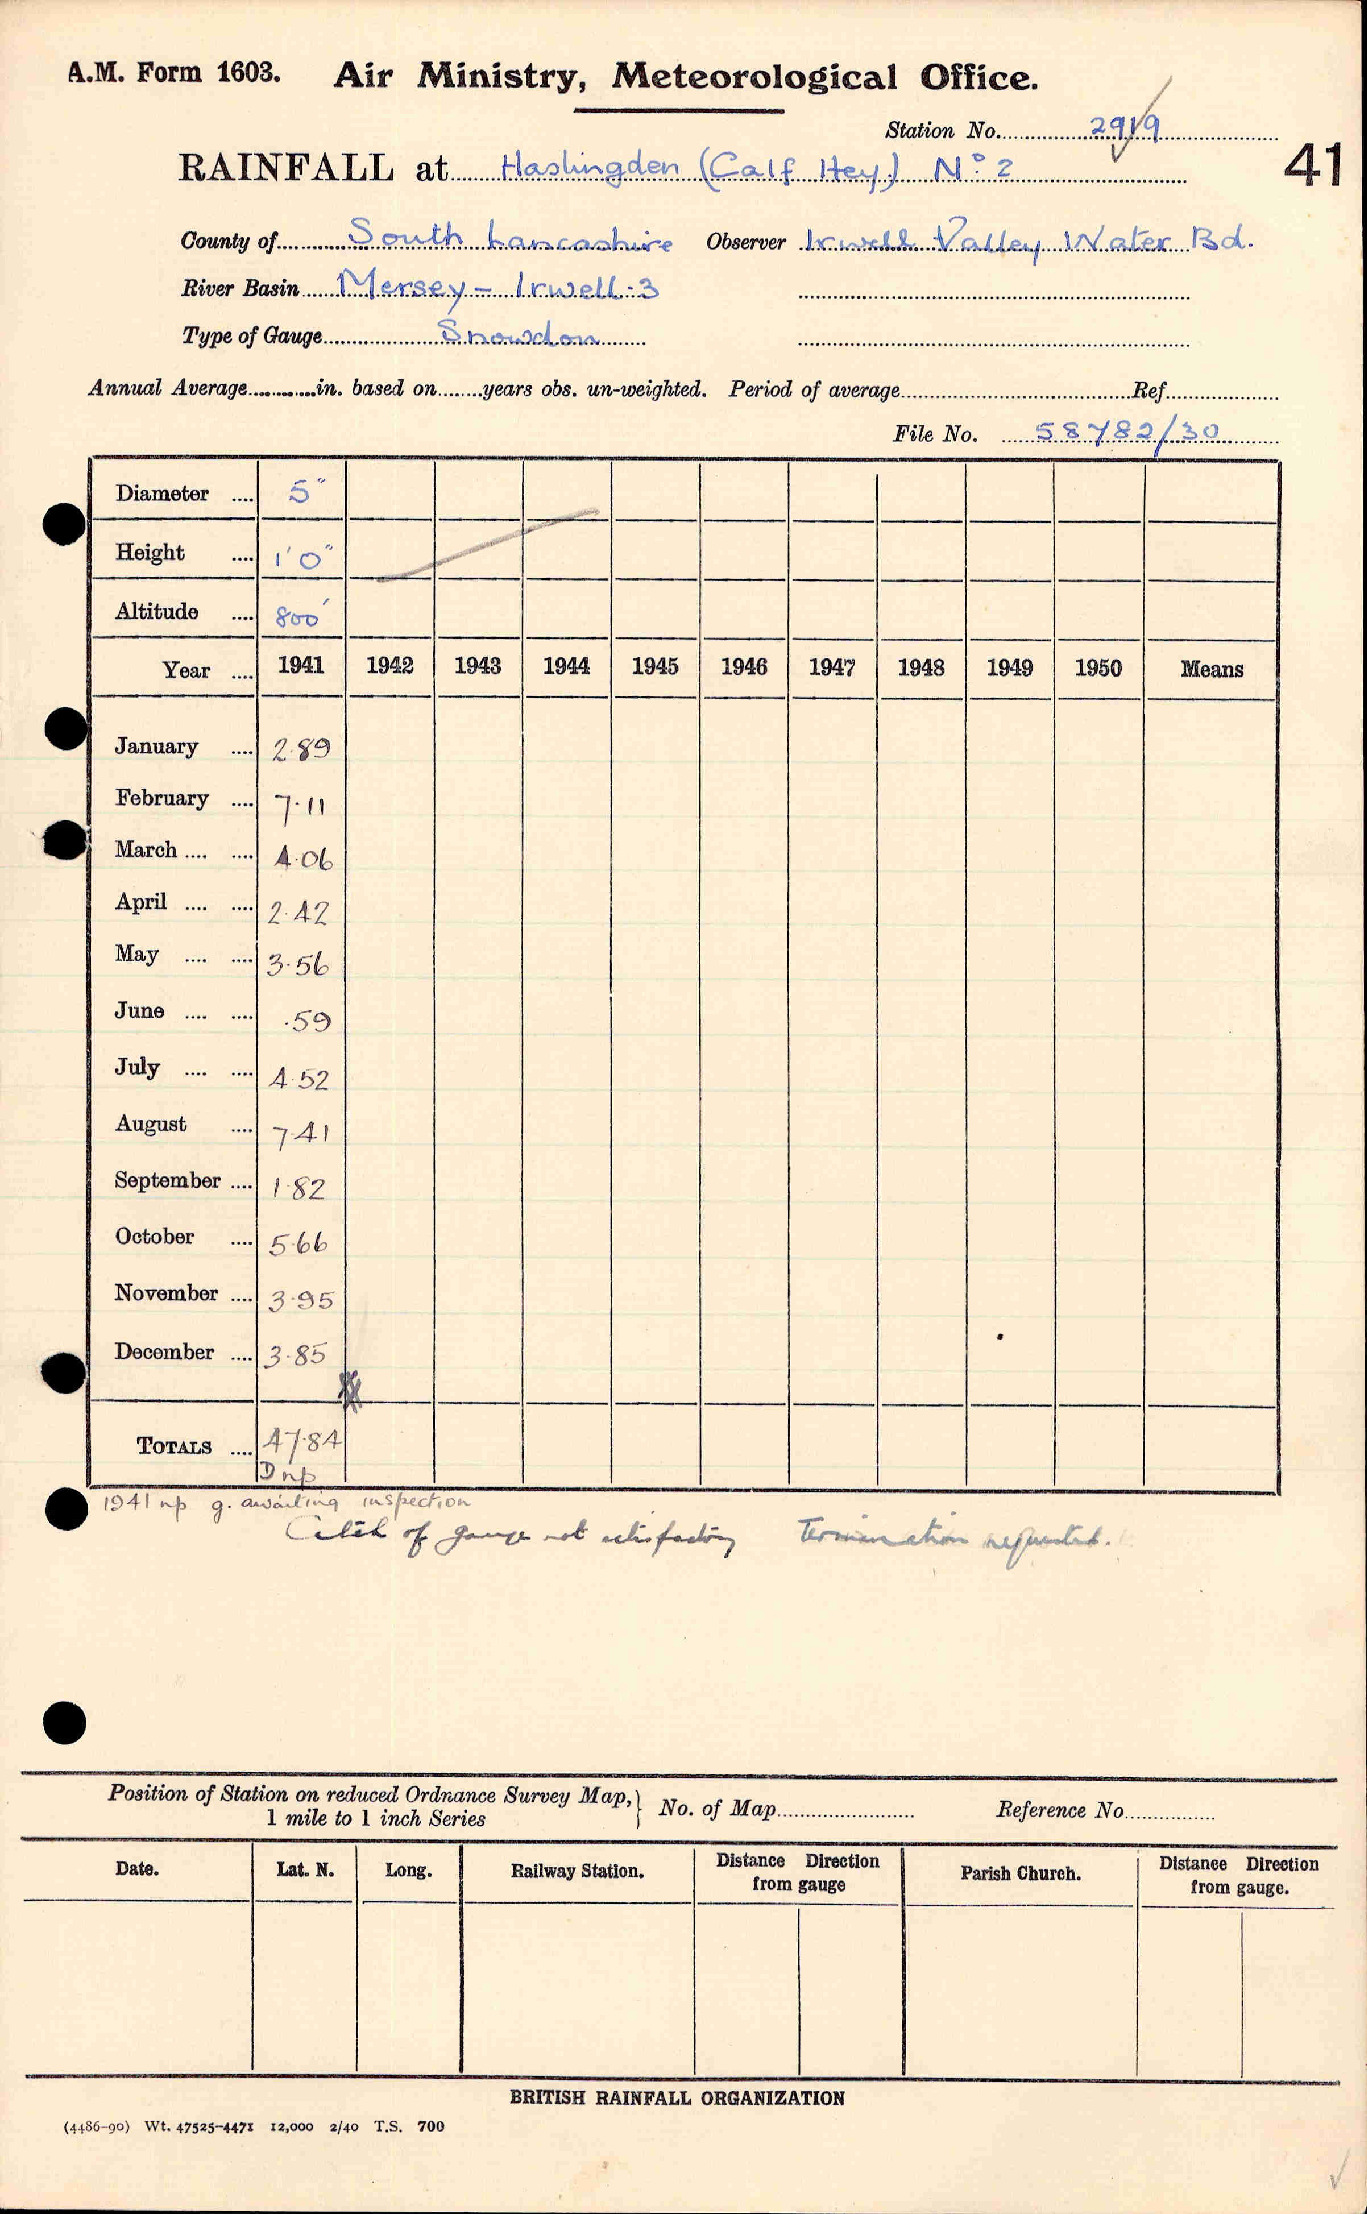 A.M. Form 1603. Air Ministry, Meteorological Office.
Station No. 2919
RAINFALL at Haslingden (Calf Hey) No. 2
41
County of South Lancashire Observer Irwell Valley Water Bd.
River Basin Mersey - Irwell.3
Type of Gauge Snowdon
Annual Average in. based on years obs. un-weighted. Period of average Ref.
File No. 58782/30
Diameter 5"
Height 1'0"
Altitude 800'
Year 1941 1942 1943 1944 1945 1946 1947 1948 1949 1950 Means
January 2.89
February 7.11
March 4.06
April 2.42
May 3.56
June .59
July 4.52
August 7.41
September 1.82
October 5.66
November 3.95
December 3.85
TOTALS 47.84
D np
1941 np g. awaiting inspection
Catch of gauge not satisfactory Termination requested.
Position of Station on reduced Ordnance Survey Map, } No. of Map Reference No
1 mile to 1 inch Series
Date. Lat. N. Long. Railway Station. Distance Direction from gauge Parish Church. Distance Direction from gauge.
BRITISH RAINFALL ORGANIZATION
(4486-90) Wt. 47525-4471 12,000 2/40 T.S. 700